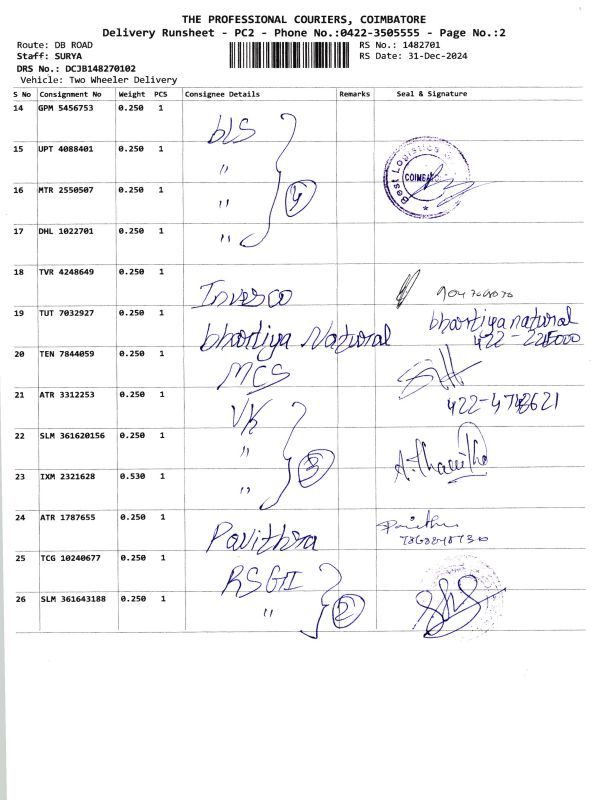 THE PROFESSIONAL COURIERS, COIMBATORE
Delivery Runsheet - PC2 - Phone No.:0422-3505555 - Page No.:2
Route: DB ROAD RS No.: 1482701
Staff: SURYA RS Date: 31-Dec-2024
DRS No.: DCJB148270102
Vehicle: Two Wheeler Delivery
S No Consignment No Weight PCS Consignee Details Remarks Seal & Signature
14 GPM 5456753 0.250 1 bLS
15 UPT 4088401 0.250 1 "
16 MTR 2550507 0.250 1 " 4
Best Logistics
COIMBA
17 DHL 1022701 0.250 1 "
18 TVR 4248649 0.250 1 Invesco
19 TUT 7032927 0.250 1 bhartiya Natural bhartiya natural
20 TEN 7844059 0.250 1 MCS
21 ATR 3312253 0.250 1 VK
22 SLM 361620156 0.250 1 " A.Thavitha
23 IXM 2321628 0.530 1 " 3
24 ATR 1787655 0.250 1 Pavithra
25 TCG 10240677 0.250 1 RSGII
26 SLM 361643188 0.250 1 " 2